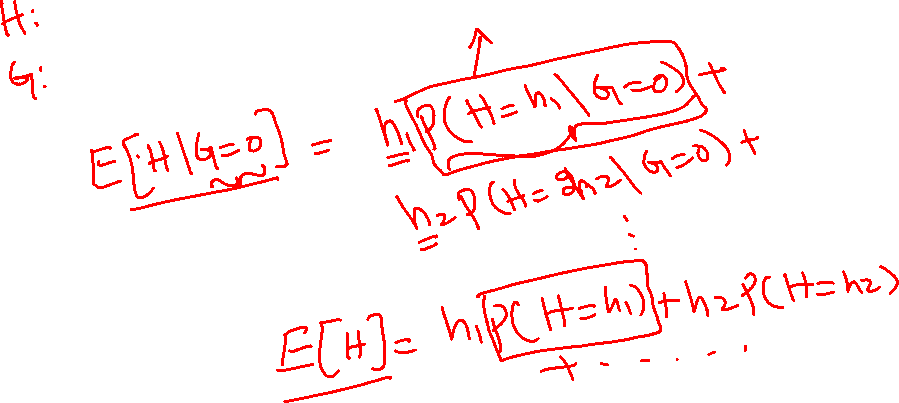 H:
G:
E[H|G=0] = h₁P(H=h₁|G=0) +
h₂P(H=h₂|G=0) +
⋮
E[H] = h₁P(H=h₁) + h₂P(H=h₂)
+ . . . . . .